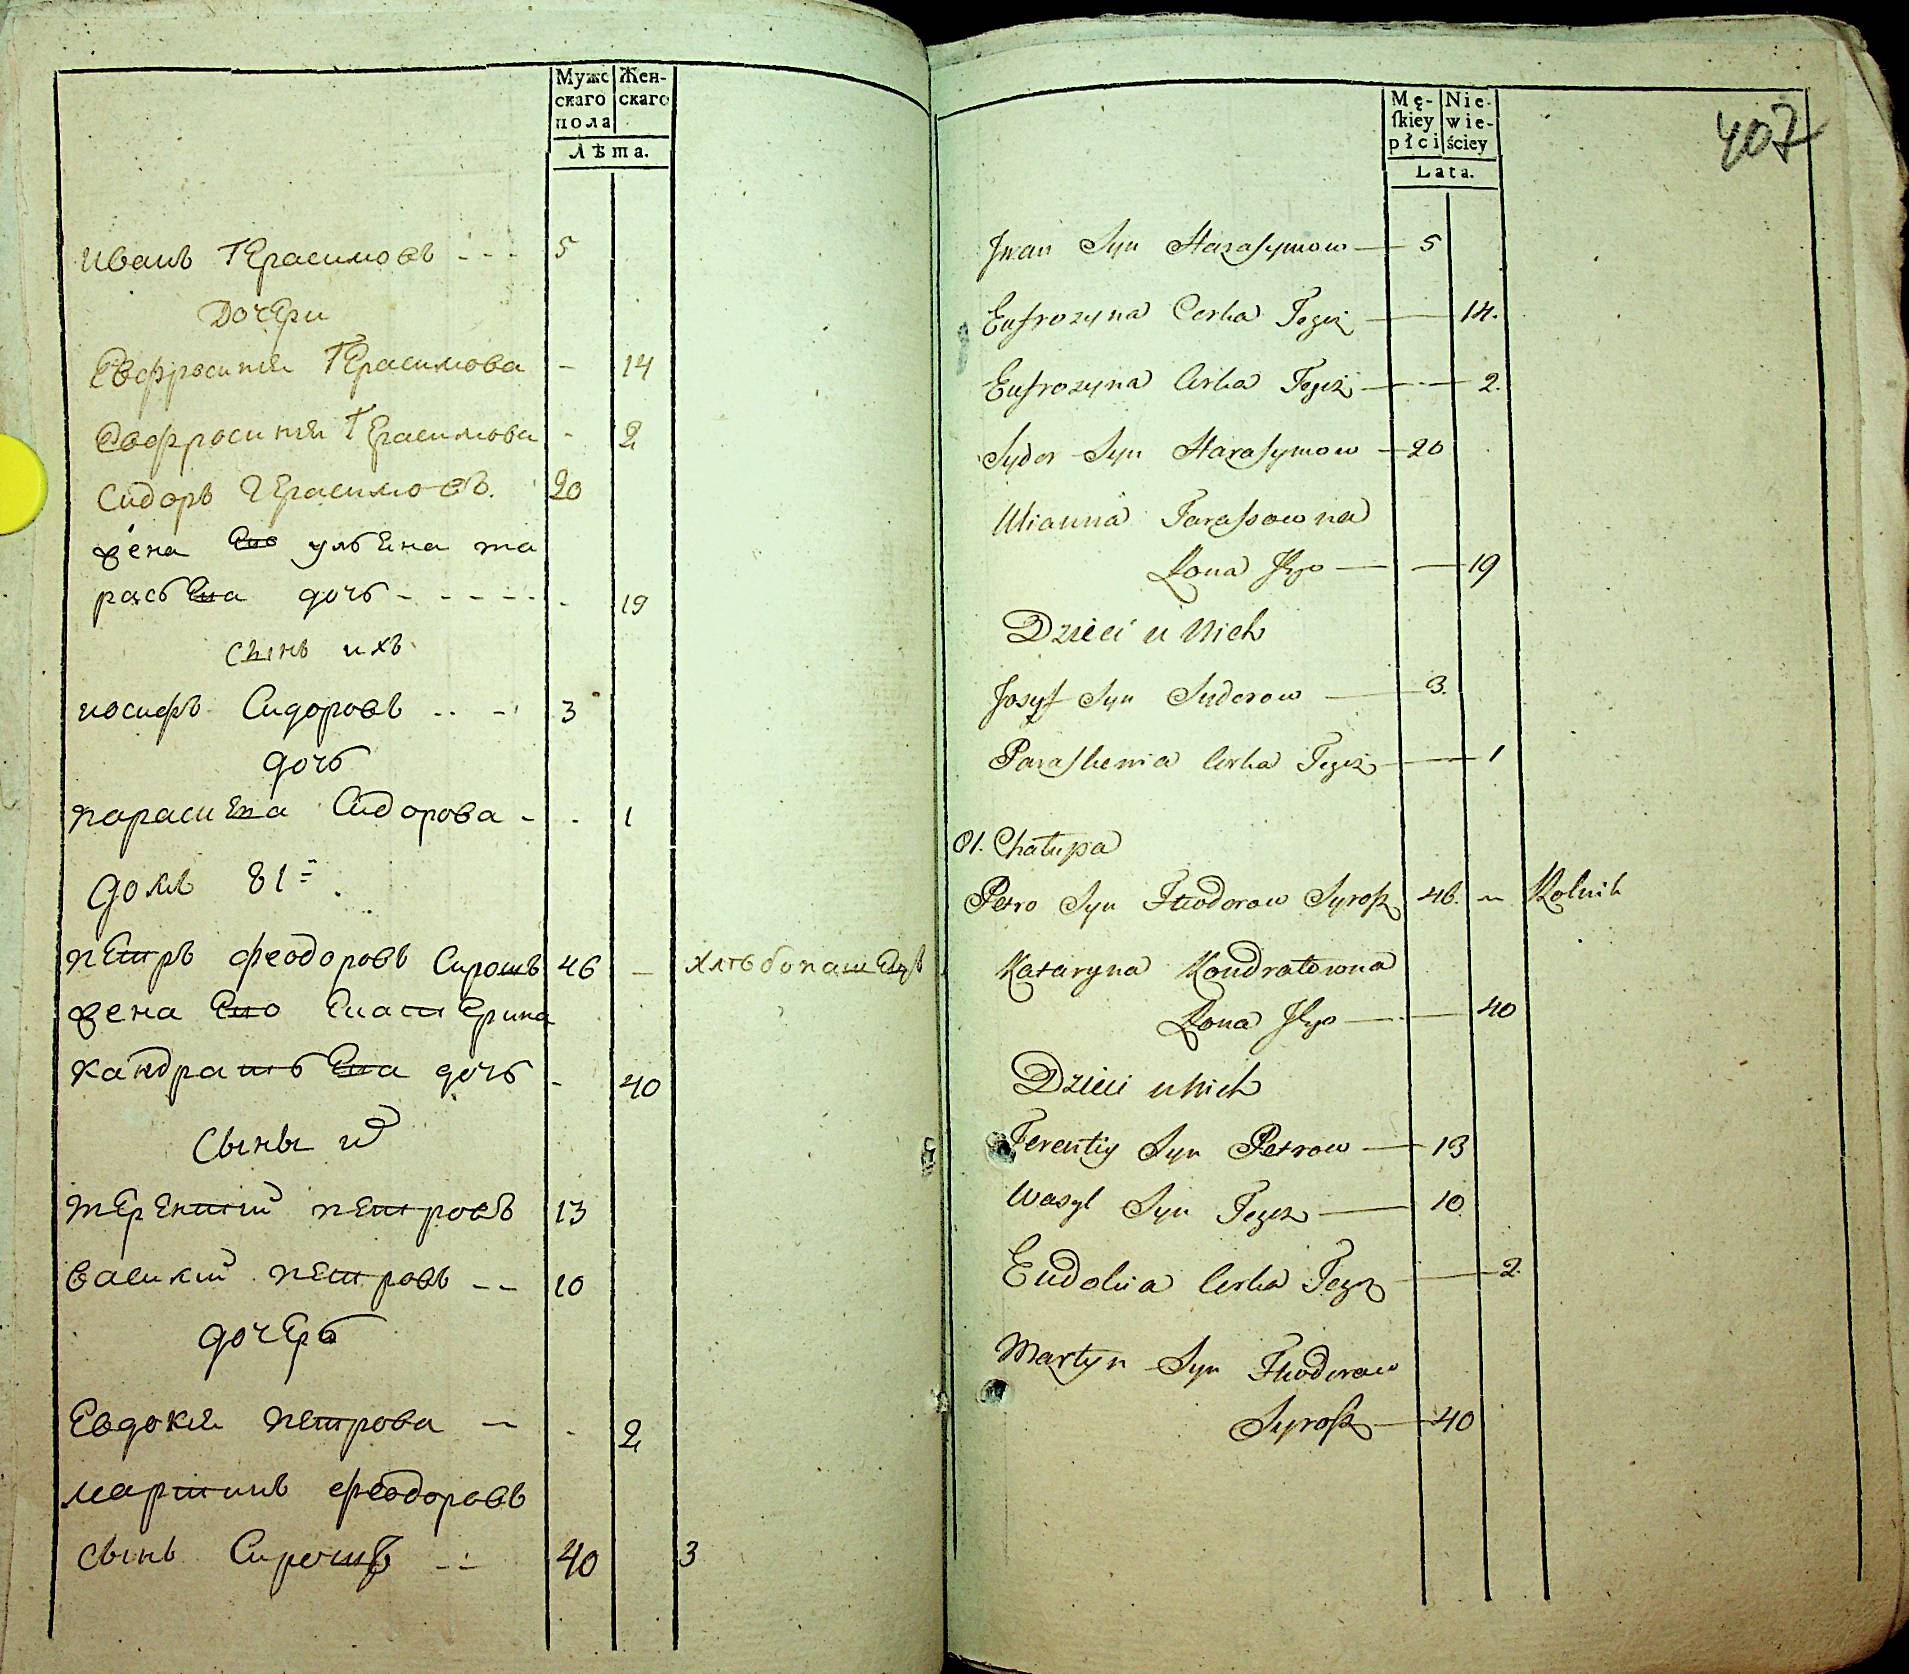 Мужс Жен-
скаго скаго
пола
Лѣта.
Иванъ Герасимовъ - - - 5
Дочери
Евфросинія Герасимова - 14
Евфросинія Герасимова - 2
Сидоръ Герасимовъ. 20
жена Его ульяна та
расьева дочь - - - - - 19
Сынъ ихъ
иосифъ Сидоровъ .. - 3
дочь
параскева Сидорова - - 1
домъ 81
петръ феодоровъ Сирошъ 46 — хлѣбопашецъ
жена Его Екатерина
кандратьева дочь - 40
Сыны их
терентий петровъ 13
василий петровъ -- 10
дочерь
Евдокия петрова - - 2
мартинъ феодоровъ
сынъ Сирошъ -- 40 3
407
Mę- Nie-
ſkiey wie-
płci ściey
Lata.
Jwan Syn Harasymow — 5
Eufrozyna Corka Tegoż — 14.
Eufrozyna Corka Tegoż — 2.
Sydor Syn Harasymow — 20
Ulianna Tarasowna
Żona Jego — 19
Dzieci u Nich
Josyf Syn Sydorow — 3.
Paraskewia Corka Tegoż — 1
81. Chałupa
Petro Syn Fteodorow Syrosz 46. — Rolnik
Kataryna Kondratowna
Żona Jego — 40
Dzieci u Nich
Terentiy Syn Petrow — 13
Wasyl Syn Tegoż — 10
Eudokia Corka Tegoż — 2.
Martyn Syn Fteodorow
Syrosz — 40